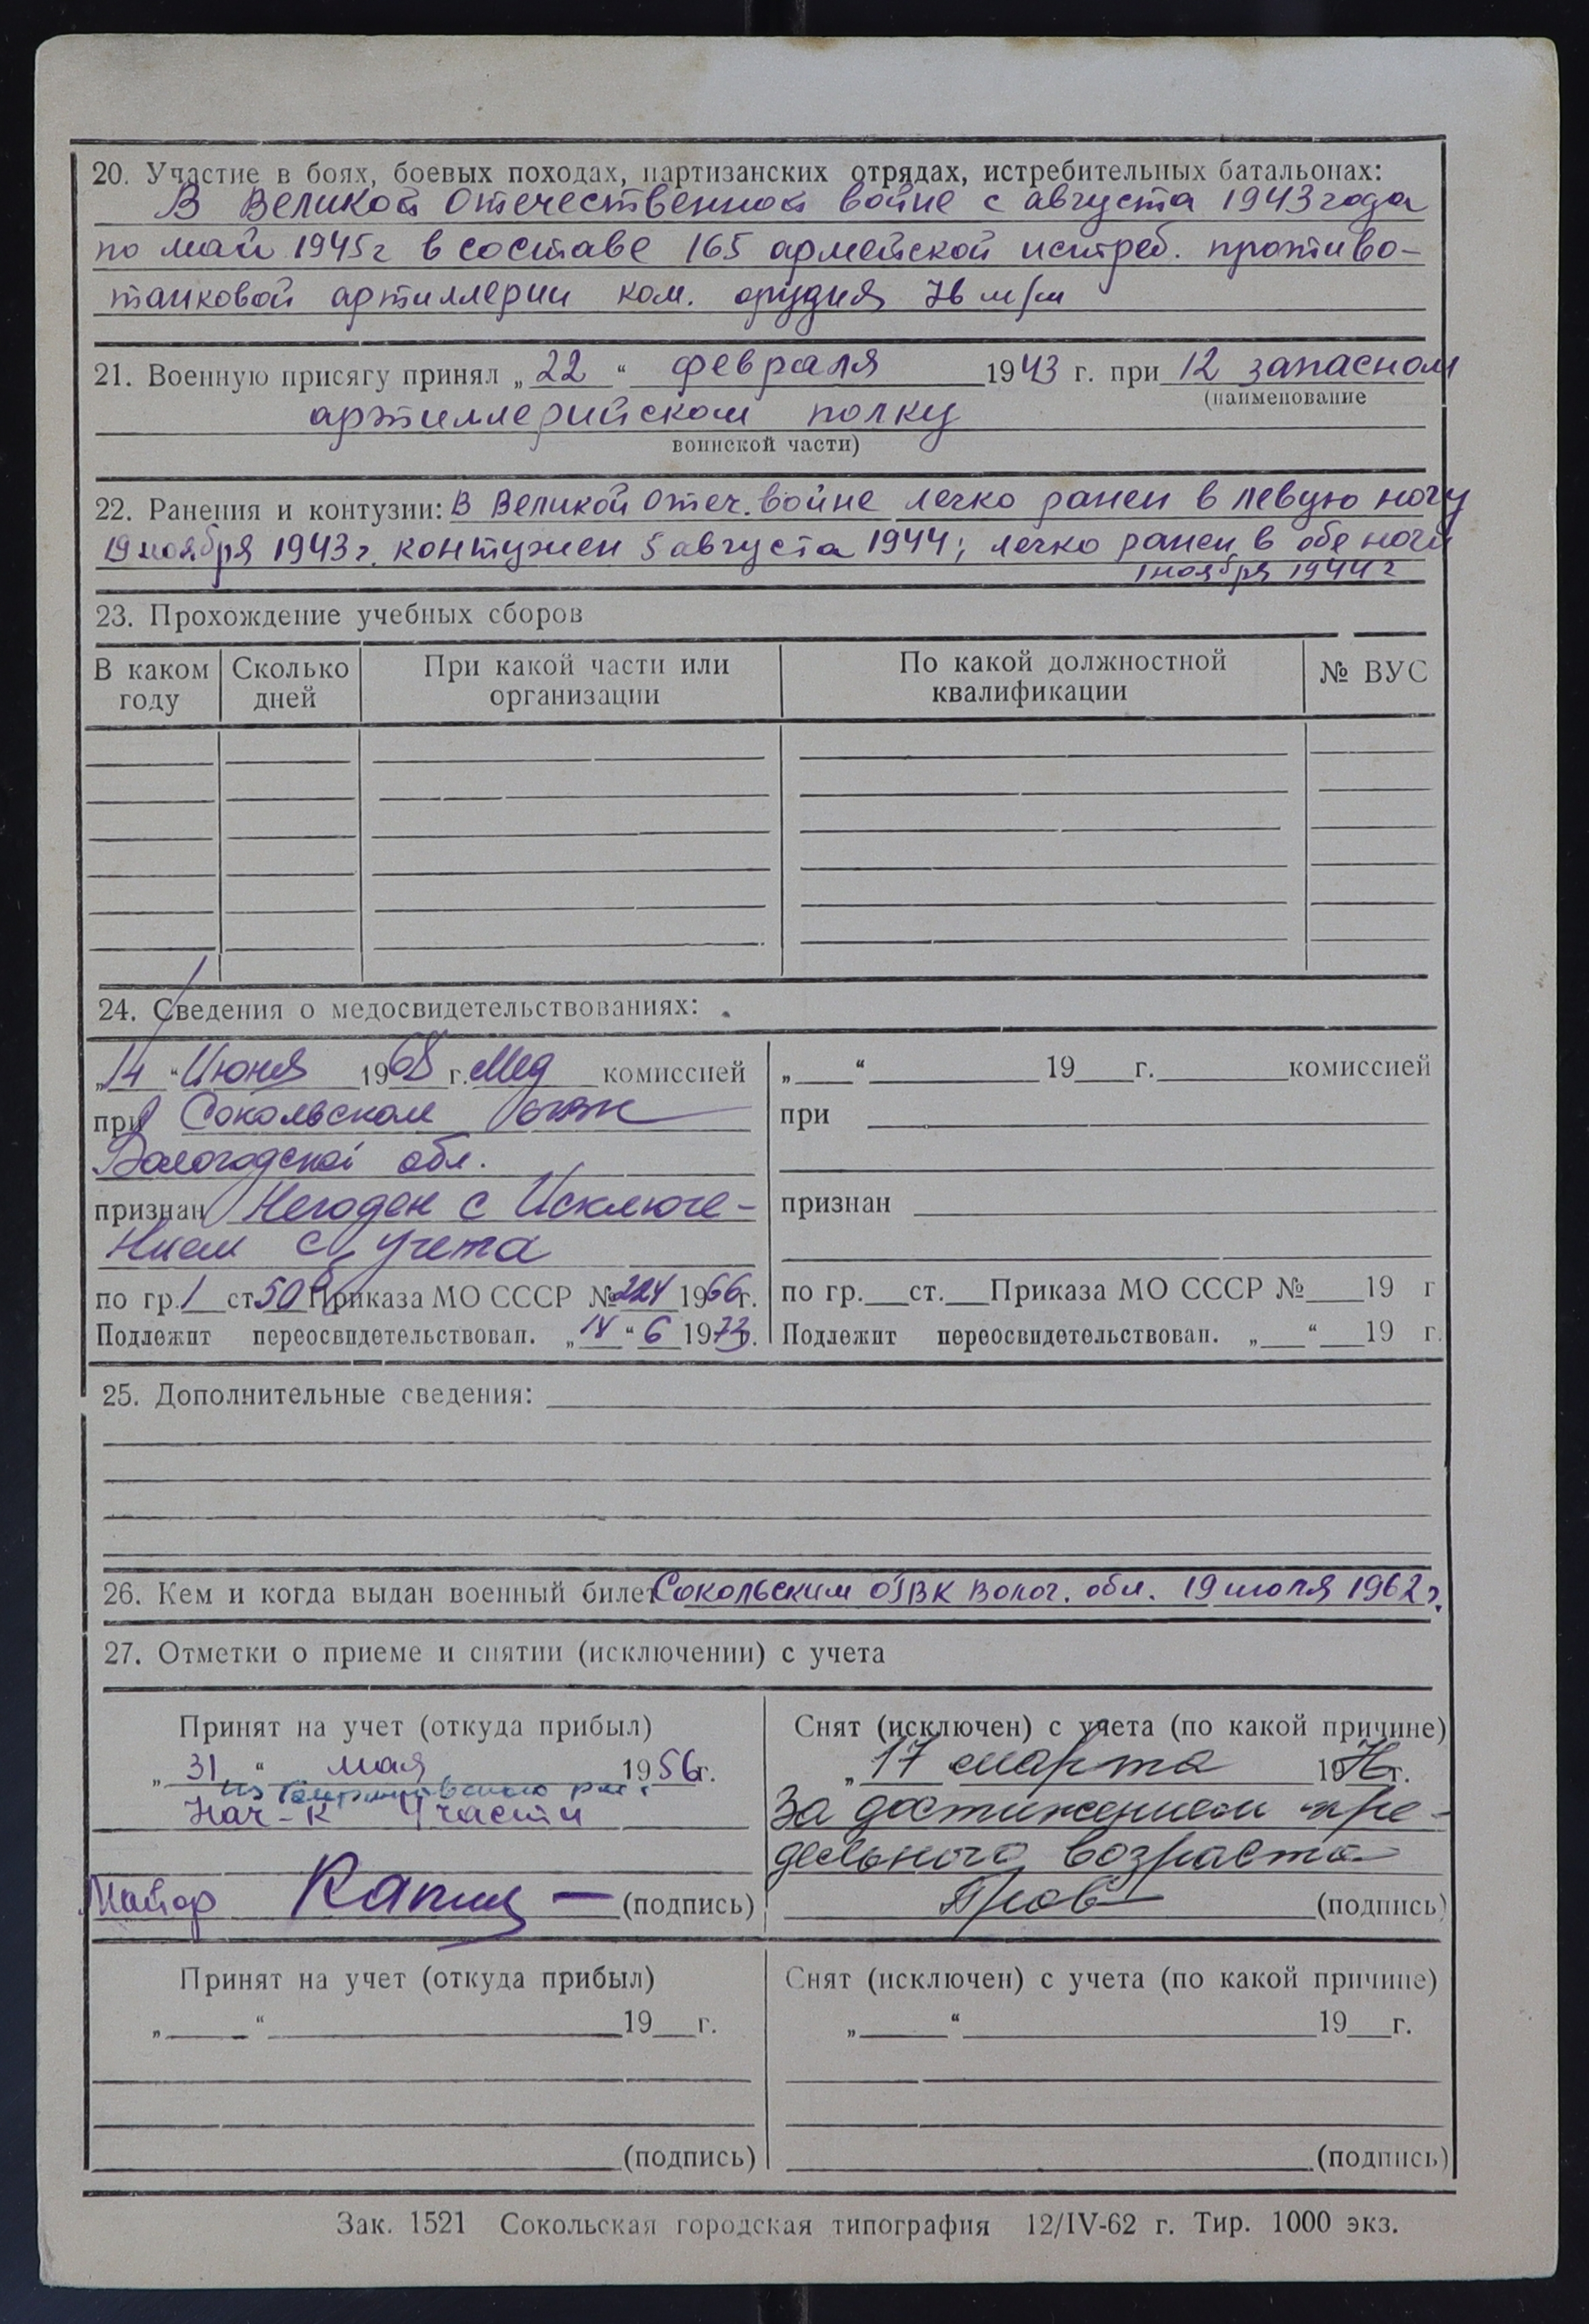 20. Участие в боях, боевых походах, партизанских отрядах, истребительных батальонах:
В Великой Отечественной войне с августа 1943 года
по май 1945г в составе 165 армейской истреб. противо-
танковой артиллерии ком. орудия 76 м/м
21. Военную присягу принял „22“ февраля 1943 г. при 12 запасном
(наименование
артиллерийском полку
воинской части)
22. Ранения и контузии: В Великой Отеч. войне легко ранен в левую ногу
19 ноября 1943 г. контужен 5 августа 1944; легко ранен в обе ноги
1 ноября 1944 г
23. Прохождение учебных сборов
В каком году Сколько дней При какой части или организации По какой должностной квалификации № ВУС
24. Сведения о медосвидетельствованиях:
„14“ Июня 1968 г. Мед комиссией
при Сокольском ОГВК
Вологодской обл.
признан Негоден с Исключе-
нием с учета
по гр. 1 ст. 50 Приказа МО СССР № 224 1966г.
Подлежит переосвидетельствован. „14“ 6 1973г.
„ “ 19 г. комиссией
при
признан
по гр. ст. Приказа МО СССР № 19 г
Подлежит переосвидетельствован. „ “ 19 г.
25. Дополнительные сведения:
26. Кем и когда выдан военный билет Сокольским ОГВК Волог. обл. 19 июля 1962 г.
27. Отметки о приеме и снятии (исключении) с учета
Принят на учет (откуда прибыл)
„31“ мая 1956г.
из
Нач-к 4 части
Майор (подпись)
Снят (исключен) с учета (по какой причине)
„17 марта 1976г.
За достижением пре-
дельного возраста
(подпись)
Принят на учет (откуда прибыл)
„ “ 19 г.
(подпись)
Снят (исключен) с учета (по какой причине)
„ “ 19 г.
(подпись)
Зак. 1521 Сокольская городская типография 12/IV-62 г. Тир. 1000 экз.